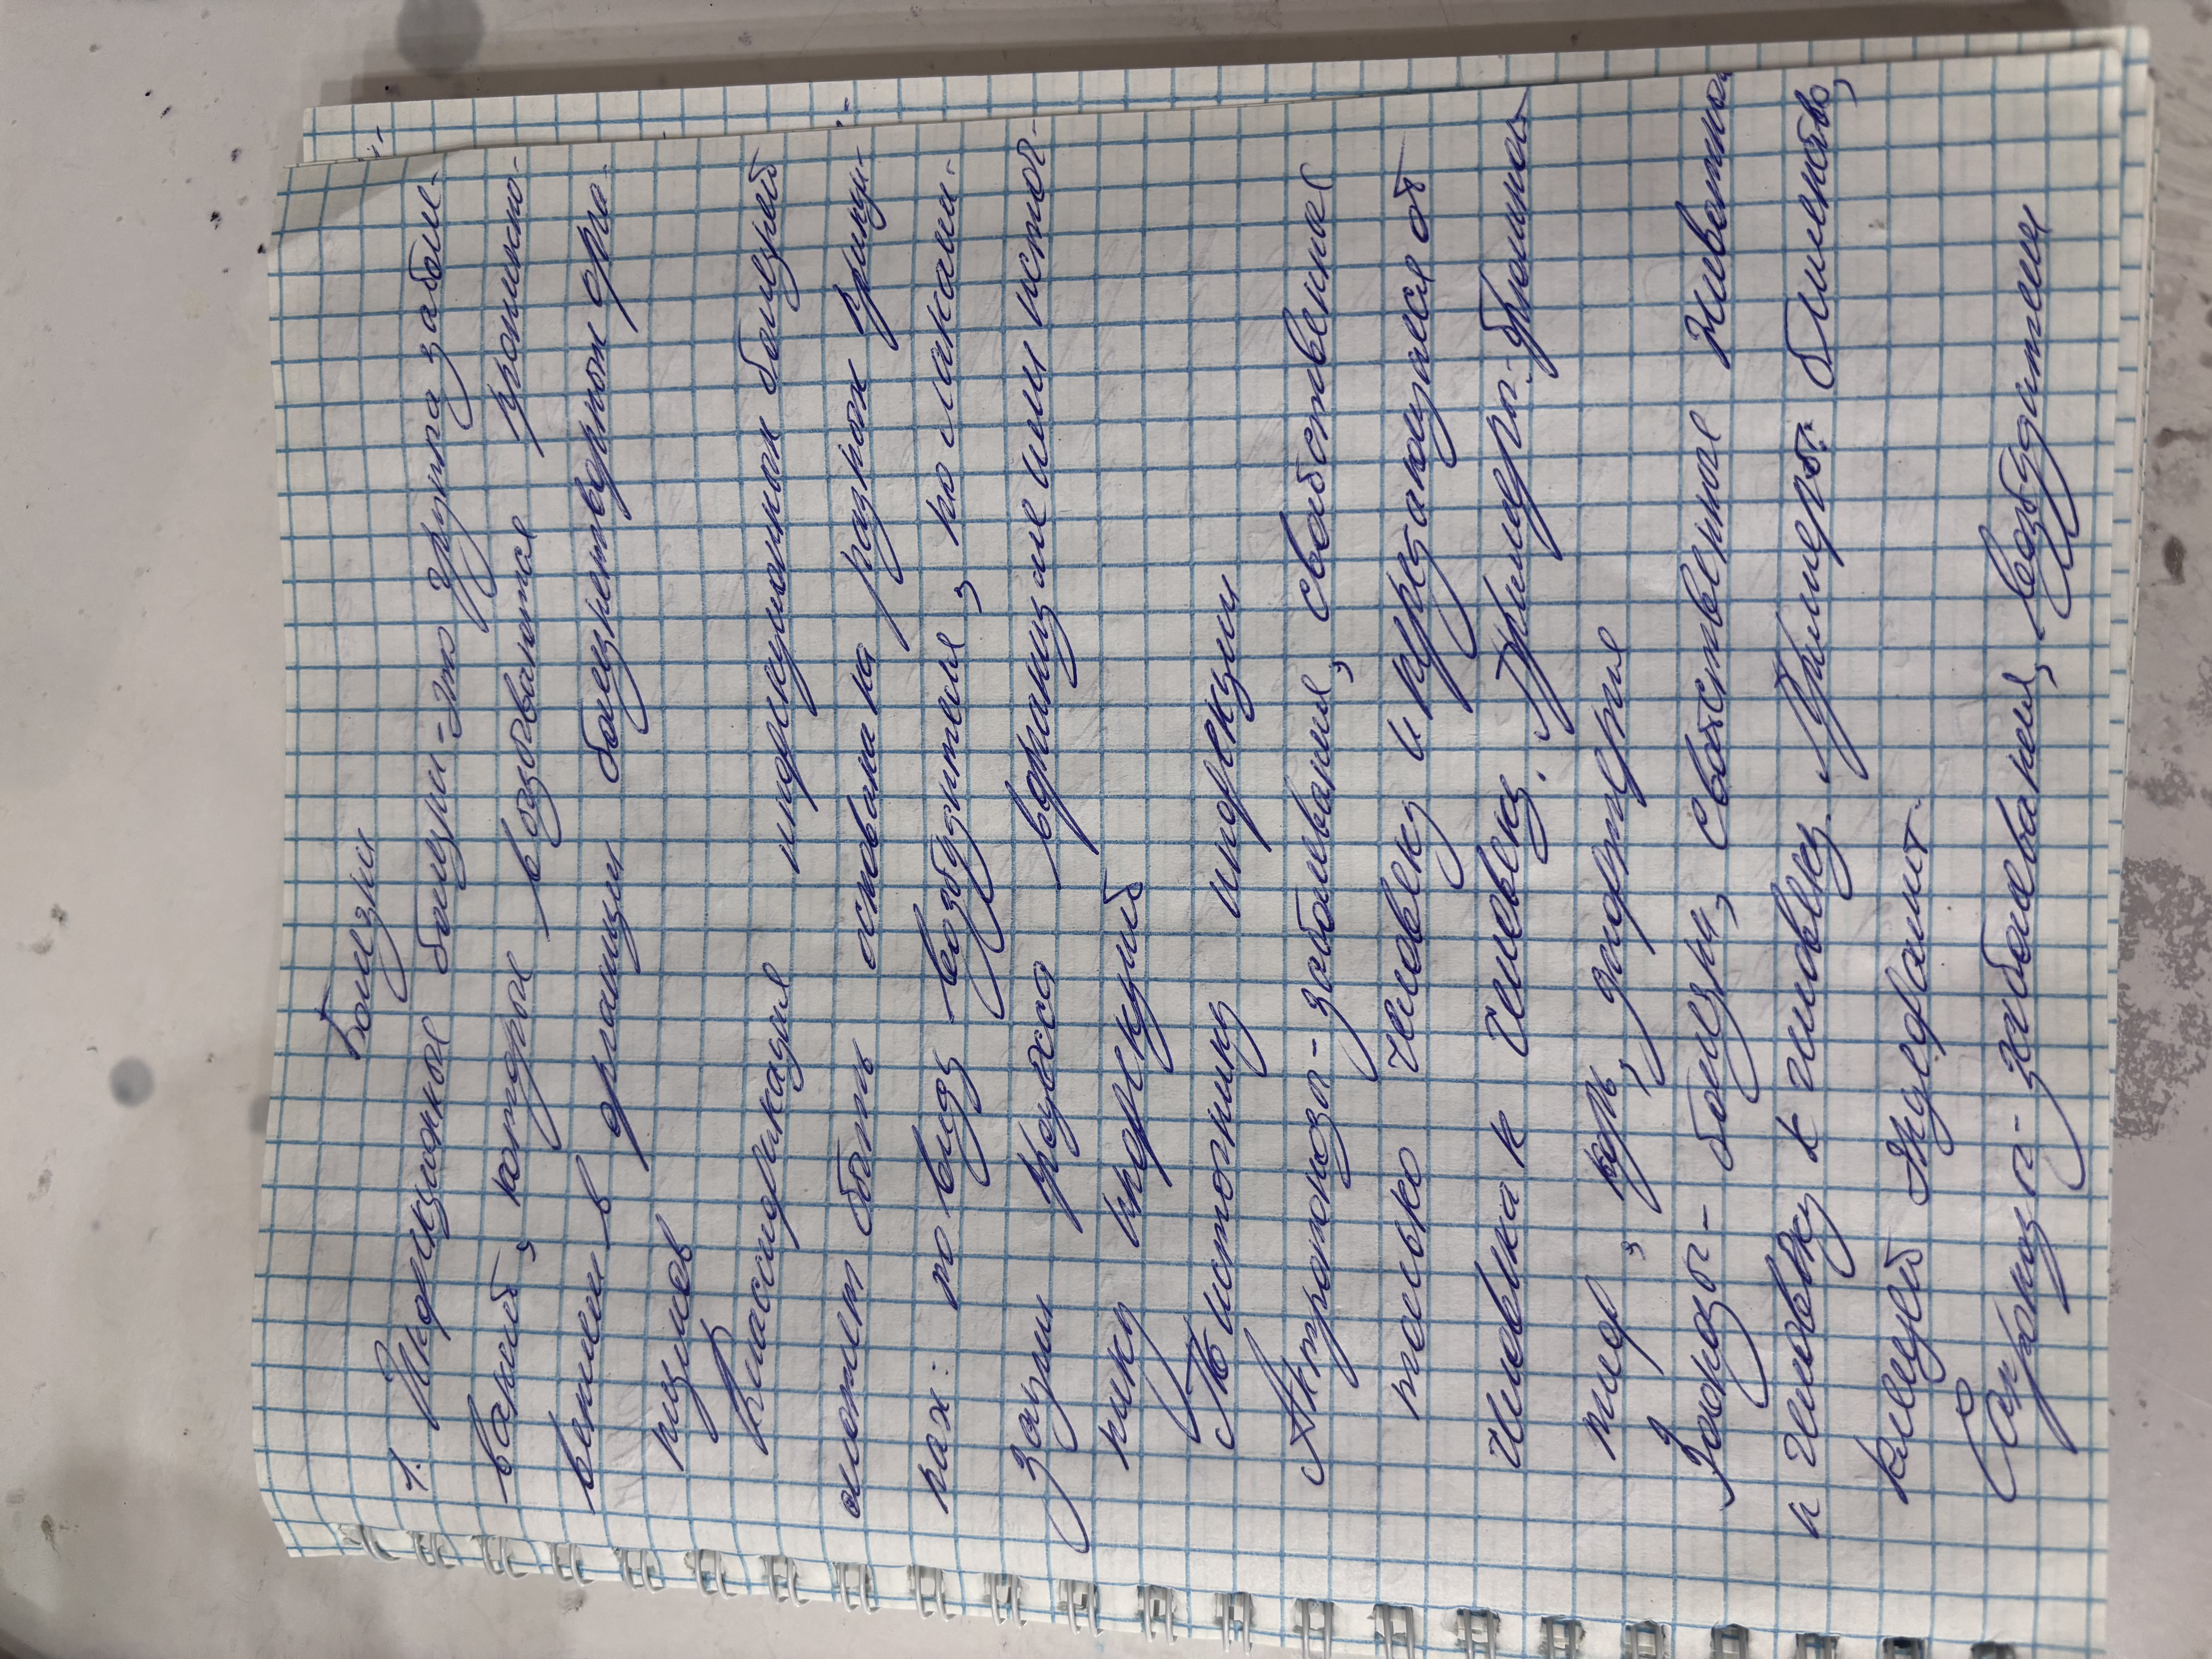 Болезни
1. Инфекционные болезни - это группа заболе-
ваний, которые вызываются проникно-
вением в организм болезнетворных орга-
низмов
Классификация инфекционных болезней
может быть основана на разных принци-
пах: по виду возбудителя, по локали-
зации процесса в организме или источ-
нику инфекций
По источнику инфекции
Антропонозы - заболевания, свойственные
только человеку и передающиеся от
человека к человеку. Примеры: брюшной
тиф, корь, дифтерия
Зоонозы - болезни, свойственные животным
и человеку к человеку. Примеры: бешенство,
клещей энцефалит.
Сапронозы - заболевания, возбудители